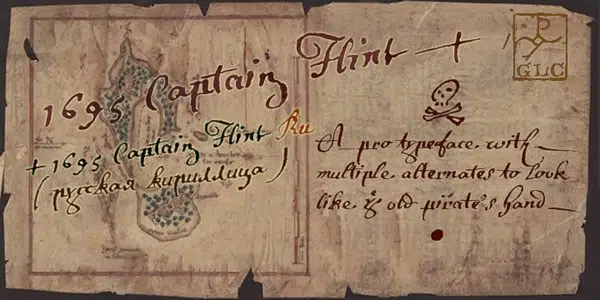 1695 Captain Flint +
+ 1695 Captain Flint Ru
(русская кириллица)
GLC
A pro typeface with
multiple alternates to look
like ye old pirate's hand